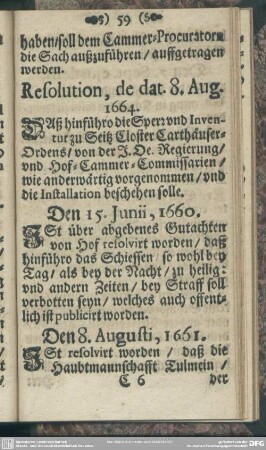 59
haben/soll dem Cammer-Procuratorn
die Sach außzuführen/auffgetragen
werden.
Resolution, de dat. 8. Aug.
1664.
DAß hinführo die Sperr vnd Inven-
tur zu Seitz Closter Carthäuser-
Ordens/von der J. Oe. Regierung/
vnd Hof-Cammer-Commissarien/
wie anderwärtig vorgenommen/vnd
die Installation beschehen solle.
Den 15. Junii, 1660.
ISt über abgebenes Gutachten
von Hof resolvirt worden/daß
hinführo das Schiessen/so wohl bey
Tag/als bey der Nacht/zu heilig:
vnd andern Zeiten/bey Straff soll
verbotten seyn/welches auch offent-
lich ist publicirt worden.
Den 8. Augusti, 1661.
ISt resolvirt worden/daß die
Haubtmannschafft Tulmein/
C 6 der